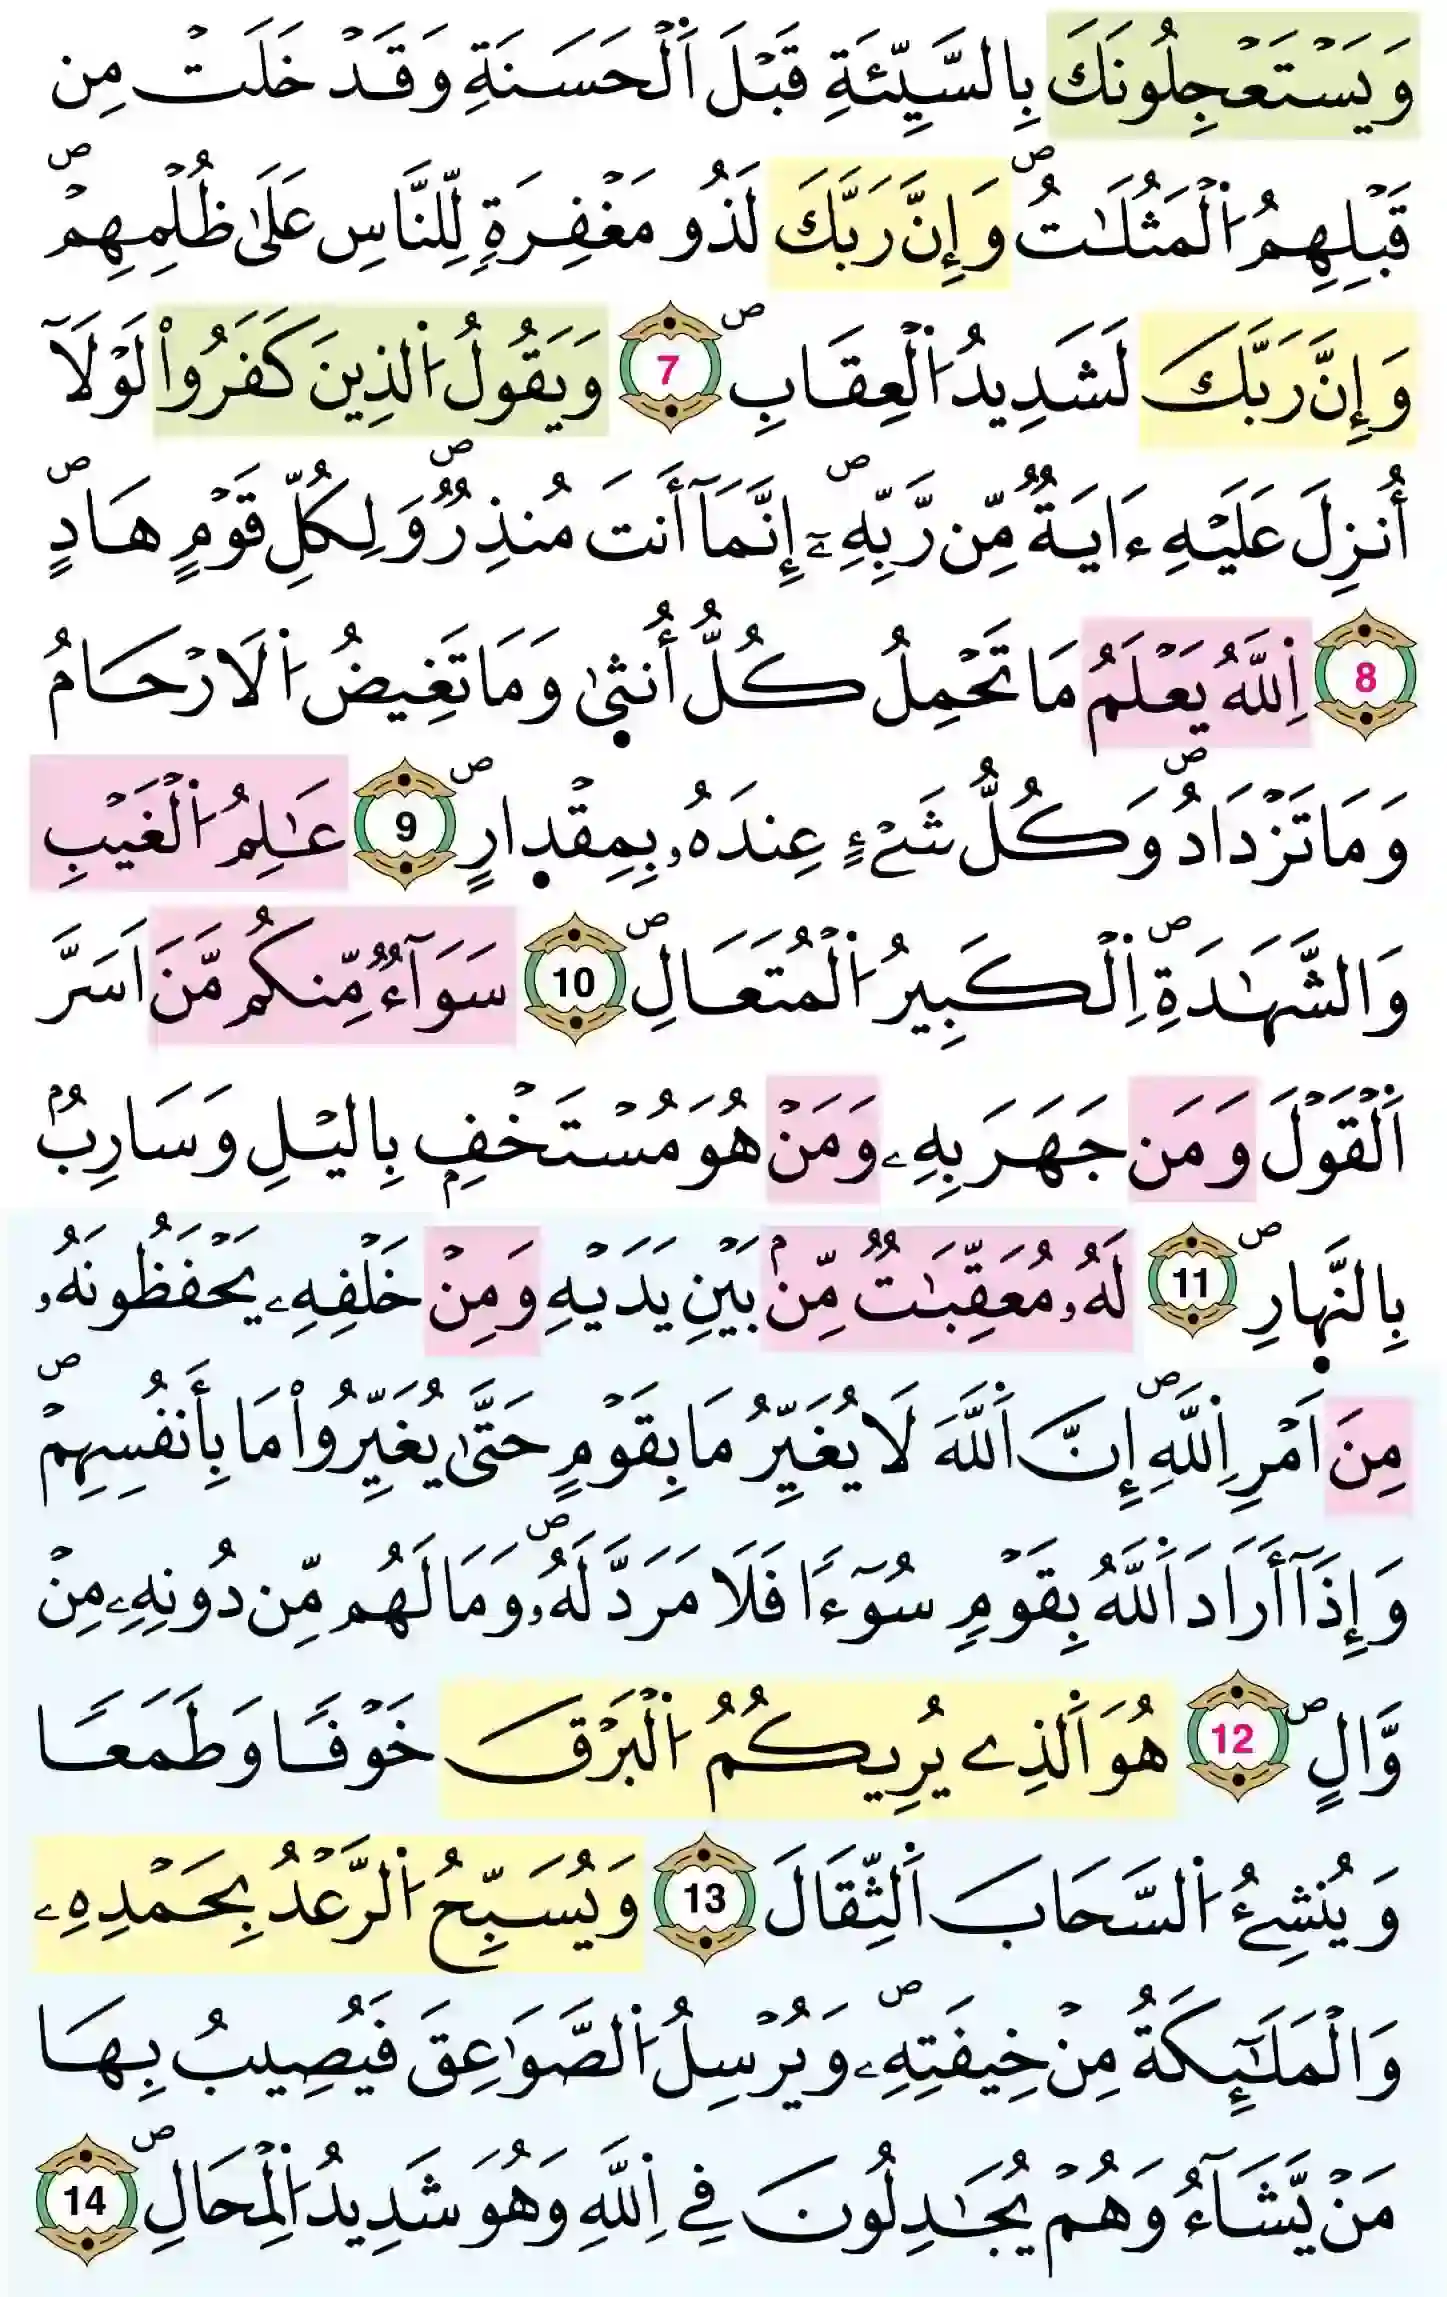 وَيَسْتَعْجِلُونَكَ بِالسَّيِّئَةِ قَبْلَ اَ۬لْحَسَنَةِ وَقَدْ خَلَتْ مِن
قَبْلِهِمُ اُ۬لْمَثُلَٰتُۖ وَإِنَّ رَبَّكَ لَذُو مَغْفِرَةٖ لِّلنَّاسِ عَلَىٰ ظُلْمِهِمْۖ
وَإِنَّ رَبَّكَ لَشَدِيدُ اُ۬لْعِقَابِۖ 7 وَيَقُولُ اُ۬لذِينَ كَفَرُواْ لَوْلَآ
أُنزِلَ عَلَيْهِ ءَايَةٞ مِّن رَّبِّهِۦٓۖ إِنَّمَآ أَنتَ مُنذِرٞۖ وَلِكُلِّ قَوْمٍ هَادٍۖ
8 اِ۬للَّهُ يَعْلَمُ مَا تَحْمِلُ كُلُّ أُنث۪ىٰ وَمَا تَغِيضُ اُ۬لَارْحَامُ
وَمَا تَزْدَادُۖ وَكُلُّ شَےْءٍ عِندَهُۥ بِمِقْد۪ارٍۖ 9 عَٰلِمُ اُ۬لْغَيْبِ
وَالشَّهَٰدَةِۖ اِ۬لْكَبِيرُ اُ۬لْمُتَعَالِۖ 10 سَوَآءٞ مِّنكُم مَّنَ اَسَرَّ
اَ۬لْقَوْلَ وَمَن جَهَرَ بِهِۦ وَمَنْ هُوَ مُسْتَخْفِۢ بِاليْلِ وَسَارِبُۢ
بِالنَّه۪ارِۖ 11 لَهُۥ مُعَقِّبَٰتٞ مِّنۢ بَيْنِ يَدَيْهِ وَمِنْ خَلْفِهِۦ يَحْفَظُونَهُۥ
مِنَ اَمْرِ اِ۬للَّهِۖ إِنَّ اَ۬للَّهَ لَا يُغَيِّرُ مَا بِقَوْمٍ حَتَّىٰ يُغَيِّرُواْ مَا بِأَنفُسِهِمْۖ
وَإِذَآ أَرَادَ اَ۬للَّهُ بِقَوْمٖ سُوٓءٗا فَلَا مَرَدَّ لَهُۥۖ وَمَا لَهُم مِّن دُونِهِۦ مِنْ
وَّالٍۖ 12 هُوَ اَ۬لذِے يُرِيكُمُ اُ۬لْبَرْقَ خَوْفٗا وَطَمَعٗا
وَيُنشِۓُ اُ۬لسَّحَابَ اَ۬لثِّقَالَ 13 وَيُسَبِّحُ اُ۬لرَّعْدُ بِحَمْدِهِۦ
وَالْمَلَٰٓئِكَةُ مِنْ خِيفَتِهِۦۖ وَيُرْسِلُ اُ۬لصَّوَٰعِقَ فَيُصِيبُ بِهَا
مَنْ يَّشَآءُ وَهُمْ يُجَٰدِلُونَ فِے اِ۬للَّهِ وَهُوَ شَدِيدُ اُ۬لْمِحَالِۖ 14